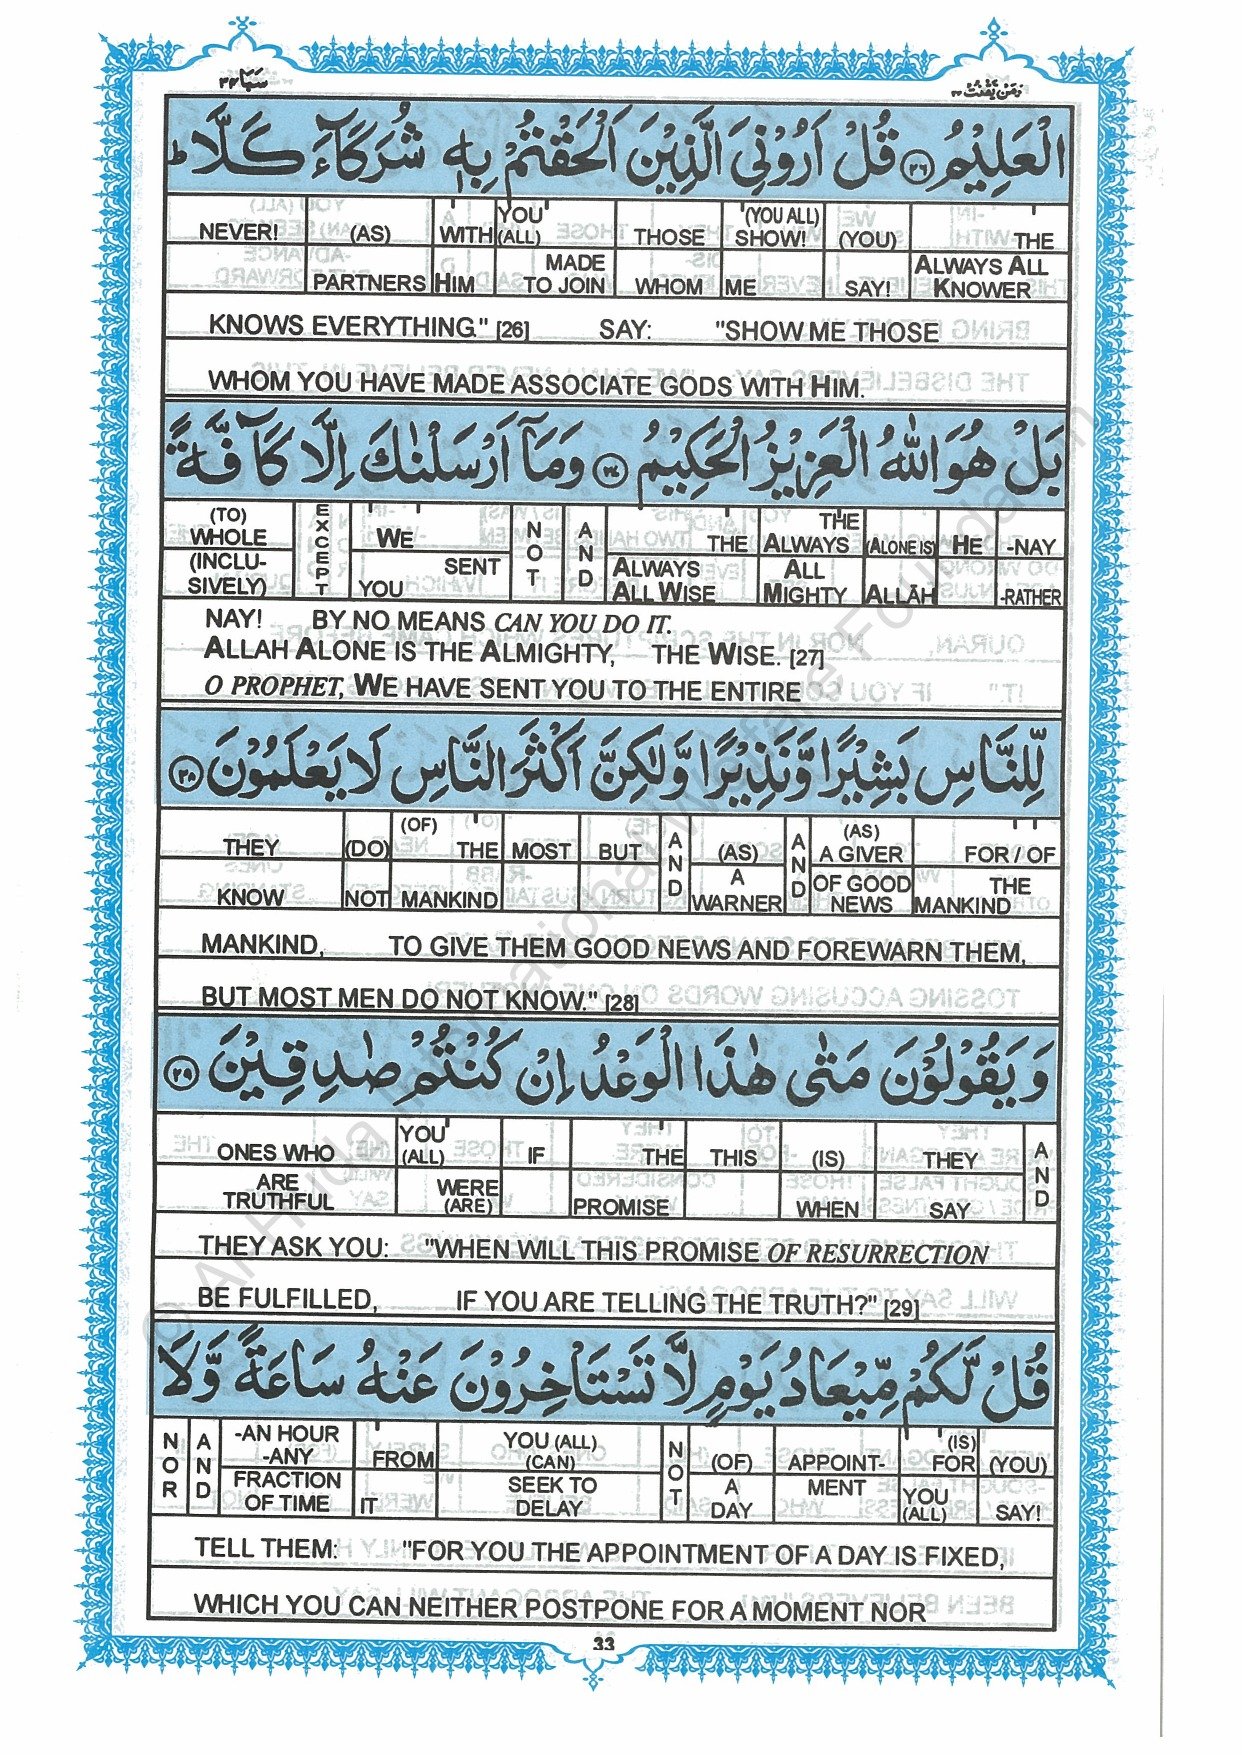 سَبَا ٣٤
وَمَنْ يَّقْنُتْ ٢٢
الْعَلِيْمُ ٢٦ قُلْ اَرُوْنِيَ الَّذِيْنَ اَلْحَقْتُمْ بِهٖ شُرَكَآءَ كَلَّا ؕ
NEVER! (AS) WITH YOU (ALL) THOSE (YOU ALL) SHOW! (YOU) THE
PARTNERS HIM MADE TO JOIN WHOM ME SAY! ALWAYS ALL KNOWER
KNOWS EVERYTHING." [26] SAY: "SHOW ME THOSE
WHOM YOU HAVE MADE ASSOCIATE GODS WITH HIM.
بَلْ هُوَ اللّٰهُ الْعَزِيْزُ الْحَكِيْمُ ٢٧ وَمَآ اَرْسَلْنٰكَ اِلَّا كَآفَّةً
(TO) WHOLE EXCEPT WE NOT AND THE THE ALWAYS (ALONE IS) HE -NAY
(INCLUSIVELY) YOU SENT ALWAYS ALL WISE ALL MIGHTY ALLĀH -RATHER
NAY! BY NO MEANS CAN YOU DO IT.
ALLAH ALONE IS THE ALMIGHTY, THE WISE. [27]
O PROPHET, WE HAVE SENT YOU TO THE ENTIRE
لِّلنَّاسِ بَشِيْرًا وَّنَذِيْرًا وَّلٰكِنَّ اَكْثَرَ النَّاسِ لَا يَعْلَمُوْنَ ٢٨
THEY (DO) (OF) THE MOST BUT AND (AS) AND (AS) A GIVER FOR / OF
KNOW NOT MANKIND A WARNER OF GOOD NEWS THE MANKIND
MANKIND, TO GIVE THEM GOOD NEWS AND FOREWARN THEM,
BUT MOST MEN DO NOT KNOW." [28]
وَيَقُوْلُوْنَ مَتٰى هٰذَا الْوَعْدُ اِنْ كُنْتُمْ صٰدِقِيْنَ ٢٩
ONES WHO YOU (ALL) IF THE THIS (IS) THEY AND
ARE TRUTHFUL WERE (ARE) PROMISE WHEN SAY
THEY ASK YOU: "WHEN WILL THIS PROMISE OF RESURRECTION
BE FULFILLED, IF YOU ARE TELLING THE TRUTH?" [29]
قُلْ لَّكُمْ مِّيْعَادُ يَوْمٍ لَّا تَسْتَاْخِرُوْنَ عَنْهُ سَاعَةً وَّلَا
NOR AND -AN HOUR -ANY FROM YOU (ALL) (CAN) NOT (OF) APPOINT- (IS) FOR (YOU)
FRACTION OF TIME IT SEEK TO DELAY A DAY MENT YOU (ALL) SAY!
TELL THEM: "FOR YOU THE APPOINTMENT OF A DAY IS FIXED,
WHICH YOU CAN NEITHER POSTPONE FOR A MOMENT NOR
33